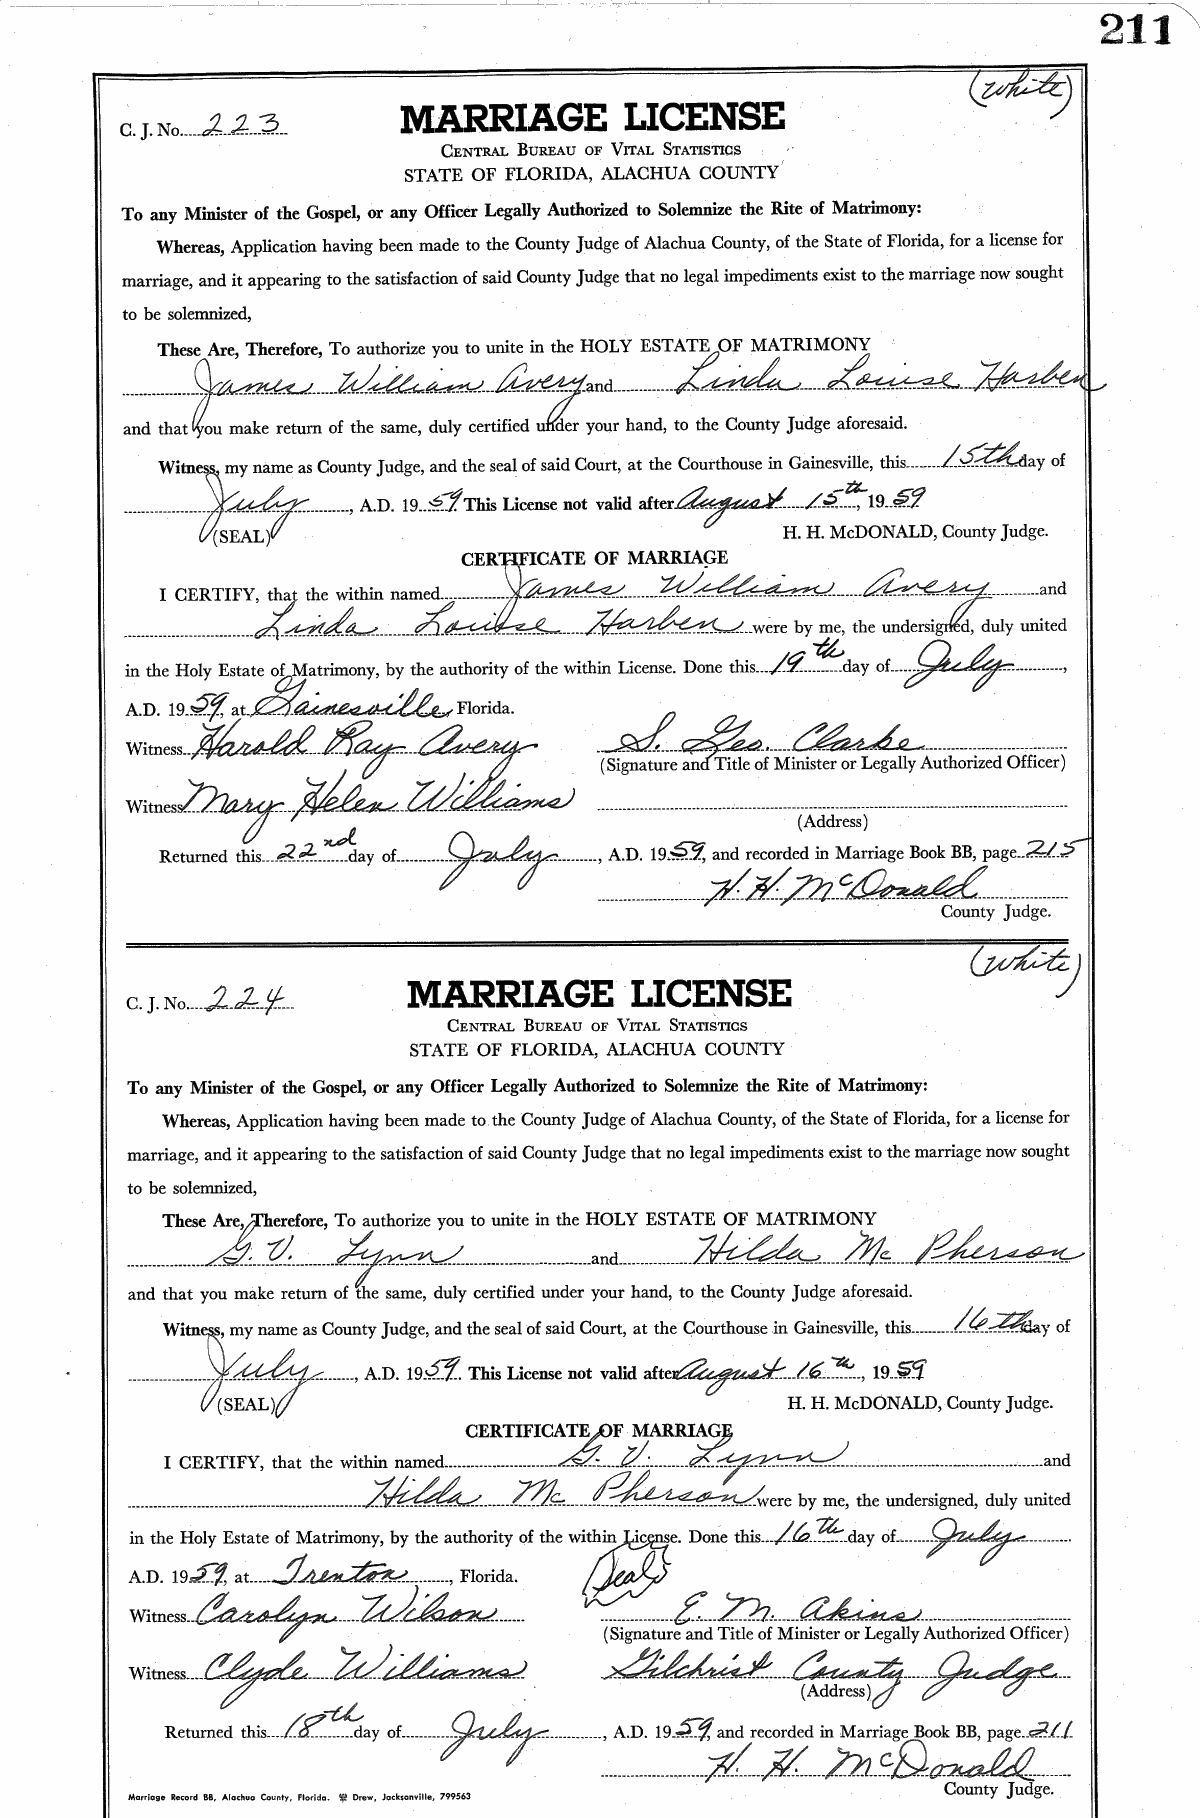 211
(White)
C. J. No. 223
MARRIAGE LICENSE
CENTRAL BUREAU OF VITAL STATISTICS
STATE OF FLORIDA, ALACHUA COUNTY
To any Minister of the Gospel, or any Officer Legally Authorized to Solemnize the Rite of Matrimony:
Whereas, Application having been made to the County Judge of Alachua County, of the State of Florida, for a license for
marriage, and it appearing to the satisfaction of said County Judge that no legal impediments exist to the marriage now sought
to be solemnized,
These Are, Therefore, To authorize you to unite in the HOLY ESTATE OF MATRIMONY
James William Avery and Linda Louise Harben
and that you make return of the same, duly certified under your hand, to the County Judge aforesaid.
Witness, my name as County Judge, and the seal of said Court, at the Courthouse in Gainesville, this 15th day of
July, A.D. 1959. This License not valid after August 15th, 1959
(SEAL) H. H. McDONALD, County Judge.
CERTIFICATE OF MARRIAGE
I CERTIFY, that the within named James William Avery and
Linda Louise Harben were by me, the undersigned, duly united
in the Holy Estate of Matrimony, by the authority of the within License. Done this 19th day of July,
A.D. 1959, at Gainesville, Florida.
Witness Harold Ray Avery S. Geo. Clarke
(Signature and Title of Minister or Legally Authorized Officer)
Witness Mary Helen Williams
(Address)
Returned this 22nd day of July, A.D. 1959, and recorded in Marriage Book BB, page 215
H. H. McDonald
County Judge.
(White)
C. J. No. 224
MARRIAGE LICENSE
CENTRAL BUREAU OF VITAL STATISTICS
STATE OF FLORIDA, ALACHUA COUNTY
To any Minister of the Gospel, or any Officer Legally Authorized to Solemnize the Rite of Matrimony:
Whereas, Application having been made to the County Judge of Alachua County, of the State of Florida, for a license for
marriage, and it appearing to the satisfaction of said County Judge that no legal impediments exist to the marriage now sought
to be solemnized,
These Are, Therefore, To authorize you to unite in the HOLY ESTATE OF MATRIMONY
G. V. Lynn and Hilda Mc Pherson
and that you make return of the same, duly certified under your hand, to the County Judge aforesaid.
Witness, my name as County Judge, and the seal of said Court, at the Courthouse in Gainesville, this 16th day of
July, A.D. 1959. This License not valid after August 16th, 1959
(SEAL) H. H. McDONALD, County Judge.
CERTIFICATE OF MARRIAGE
I CERTIFY, that the within named G. V. Lynn and
Hilda Mc Pherson were by me, the undersigned, duly united
in the Holy Estate of Matrimony, by the authority of the within License. Done this 16th day of July
A.D. 1959, at Trenton, Florida. Seal
Witness Carolyn Wilson E. M. Akins
(Signature and Title of Minister or Legally Authorized Officer)
Witness Clyde Williams Gilchrist County Judge
(Address)
Returned this 18th day of July, A.D. 1959, and recorded in Marriage Book BB, page 211
H. H. McDonald
County Judge.
Marriage Record BB, Alachua County, Florida. Drew, Jacksonville, 799563